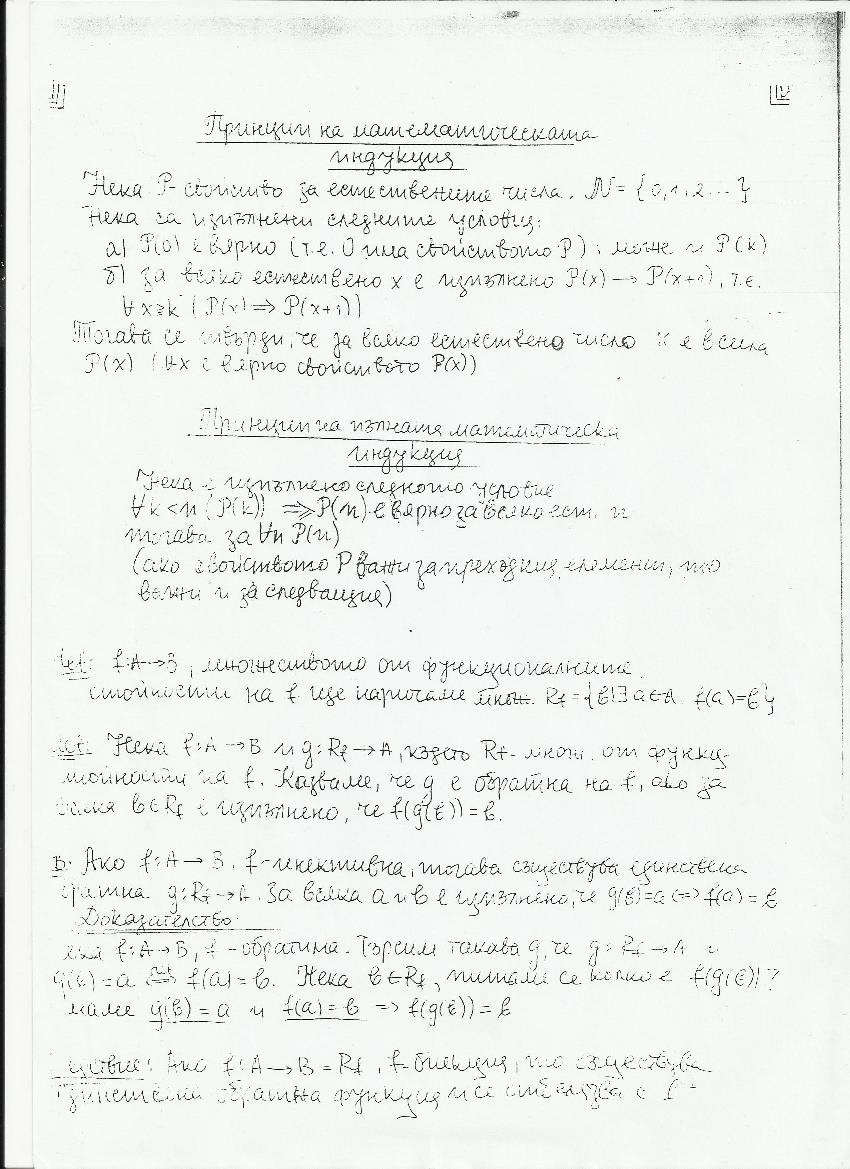 Принцип на математическата
индукция
Нека P-свойство за естествените числа. N = {0,1,2...}
Нека са изпълнени следните условия:
а) P(0) е вярно (т.е. 0 има свойството P); може и P(k)
б) за всяко естествено x е изпълнено P(x) → P(x+1), т.е.
∀x≥k (P(x) ⇒ P(x+1))
Тогава се твърди, че за всяко естествено число x е в сила
P(x) (∀x е вярно свойството P(x))
Принцип на пълната математическа
индукция
Нека е изпълнено следното условие
∀k<n (P(k)) ⇒ P(n) е вярно за всяко ест. n
тогава за ∀n P(n)
(ако свойството P важи за предходния елемент, то
важи и за следващия)
f: A→B, множеството от функционалните
стойности на f ще наричаме множ. Rf = {b|∃a∈A f(a)=b}
Нека f: A→B и g: Rf→A, където Rf - множ. от функц.
стойности на f. Казваме, че g е обратна на f, ако за
всяка b∈Rf е изпълнено, че f(g(b))=b.
В: Ако f: A→B, f-инективна, тогава съществува единствена
братна g: Rf→A. За всяка a и b е изпълнено, че g(b)=a ⇔ f(a)=b
Доказателство:
ека f: A→B, f-обратима. Търсим такава g, че g: Rf→A и
g(b)=a ⇔ f(a)=b. Нека b∈Rf, питаме се колко е f(g(b))?
маме g(b)=a и f(a)=b ⇒ f(g(b))=b
едствие: Ако f: A→B=Rf, f-биекция, то съществува
единствена обратна функция и се отбелязва с f⁻